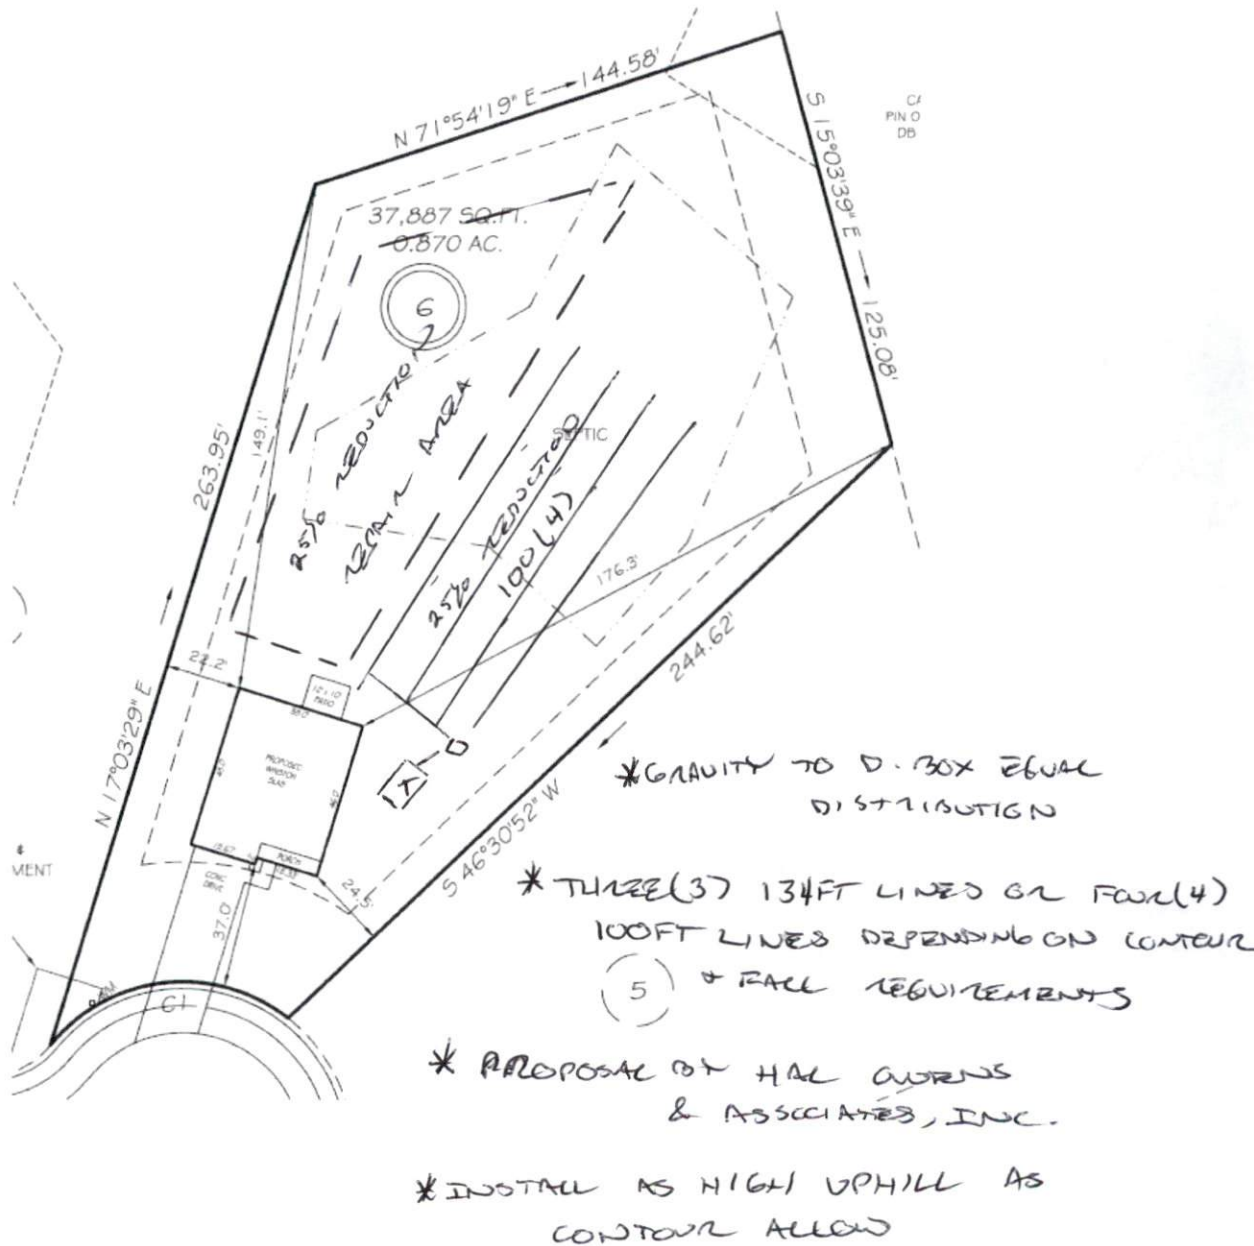 N 71°54'19" E 144.58'
S 15°03'39" E 125.08'
PIN O
DB
37,887 SQ.FT.
0.870 AC.
6
263.95'
149.1'
25% REDUCTION
REPAIR AREA
SEPTIC
25% REDUCTION
100(4)
176.3'
244.62'
22.2'
10 x 10
PATIO
N 17°03'29" E
PROPOSED
SLAB
PORCH
CONC
DRIVE
24.5'
37.0'
S 46°30'52" W
MENT
C1
* GRAVITY TO D. BOX EQUAL
DISTRIBUTION
* THREE(3) 134FT LINES OR FOUR(4)
100FT LINES DEPENDING ON CONTOUR
& FALL REQUIREMENTS
5
* PROPOSAL BY HAL OWENS
& ASSOCIATES, INC.
* INSTALL AS HIGH UPHILL AS
CONTOUR ALLOW